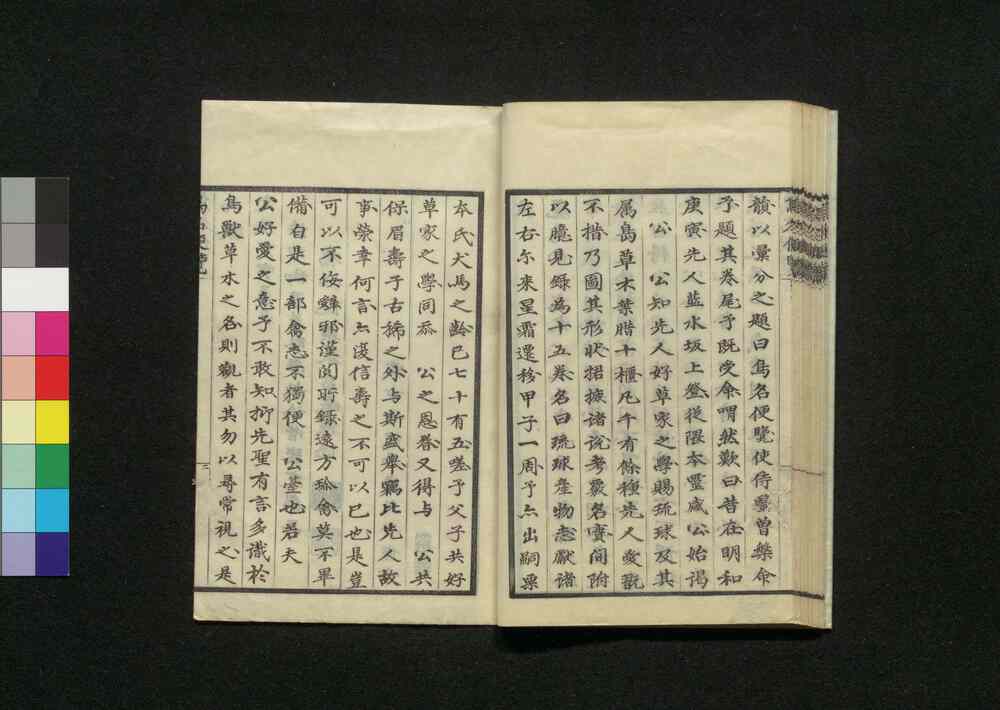 韻以彙分之題曰鳥名便覽使侍醫曾槃命
予題其卷尾予既受命喟然歎曰昔在明和
庚寅先人藍水坂上登從隈本靈感公始謁
公 公知先人好草家之學賜琉球及其
属島草木葉腊十櫃凡千有餘種先人愛翫
不措乃圖其形狀捃摭諸說考覈名實间附
以臆見錄為十五卷名曰琉球產物志獻諸
左右尓来星霜遷移甲子一周予亦出嗣栗
本氏犬馬之齡已七十有五嗟予父子共好
草家之學同忝 公之恩眷又得与 公共
保眉壽于古稀之外与斯盛舉竊比先人故
事榮幸何言亦優信壽之不可以已也是豈
可以不佞辭邪謹閲所錄遠方珍禽莫不畢
備自是一部禽志不獨便 公臺也若夫
公好愛之意予不敢知抑先聖有言多識於
鳥獸草木之名則觀者其勿以尋常視之是
鳥名便覽
三